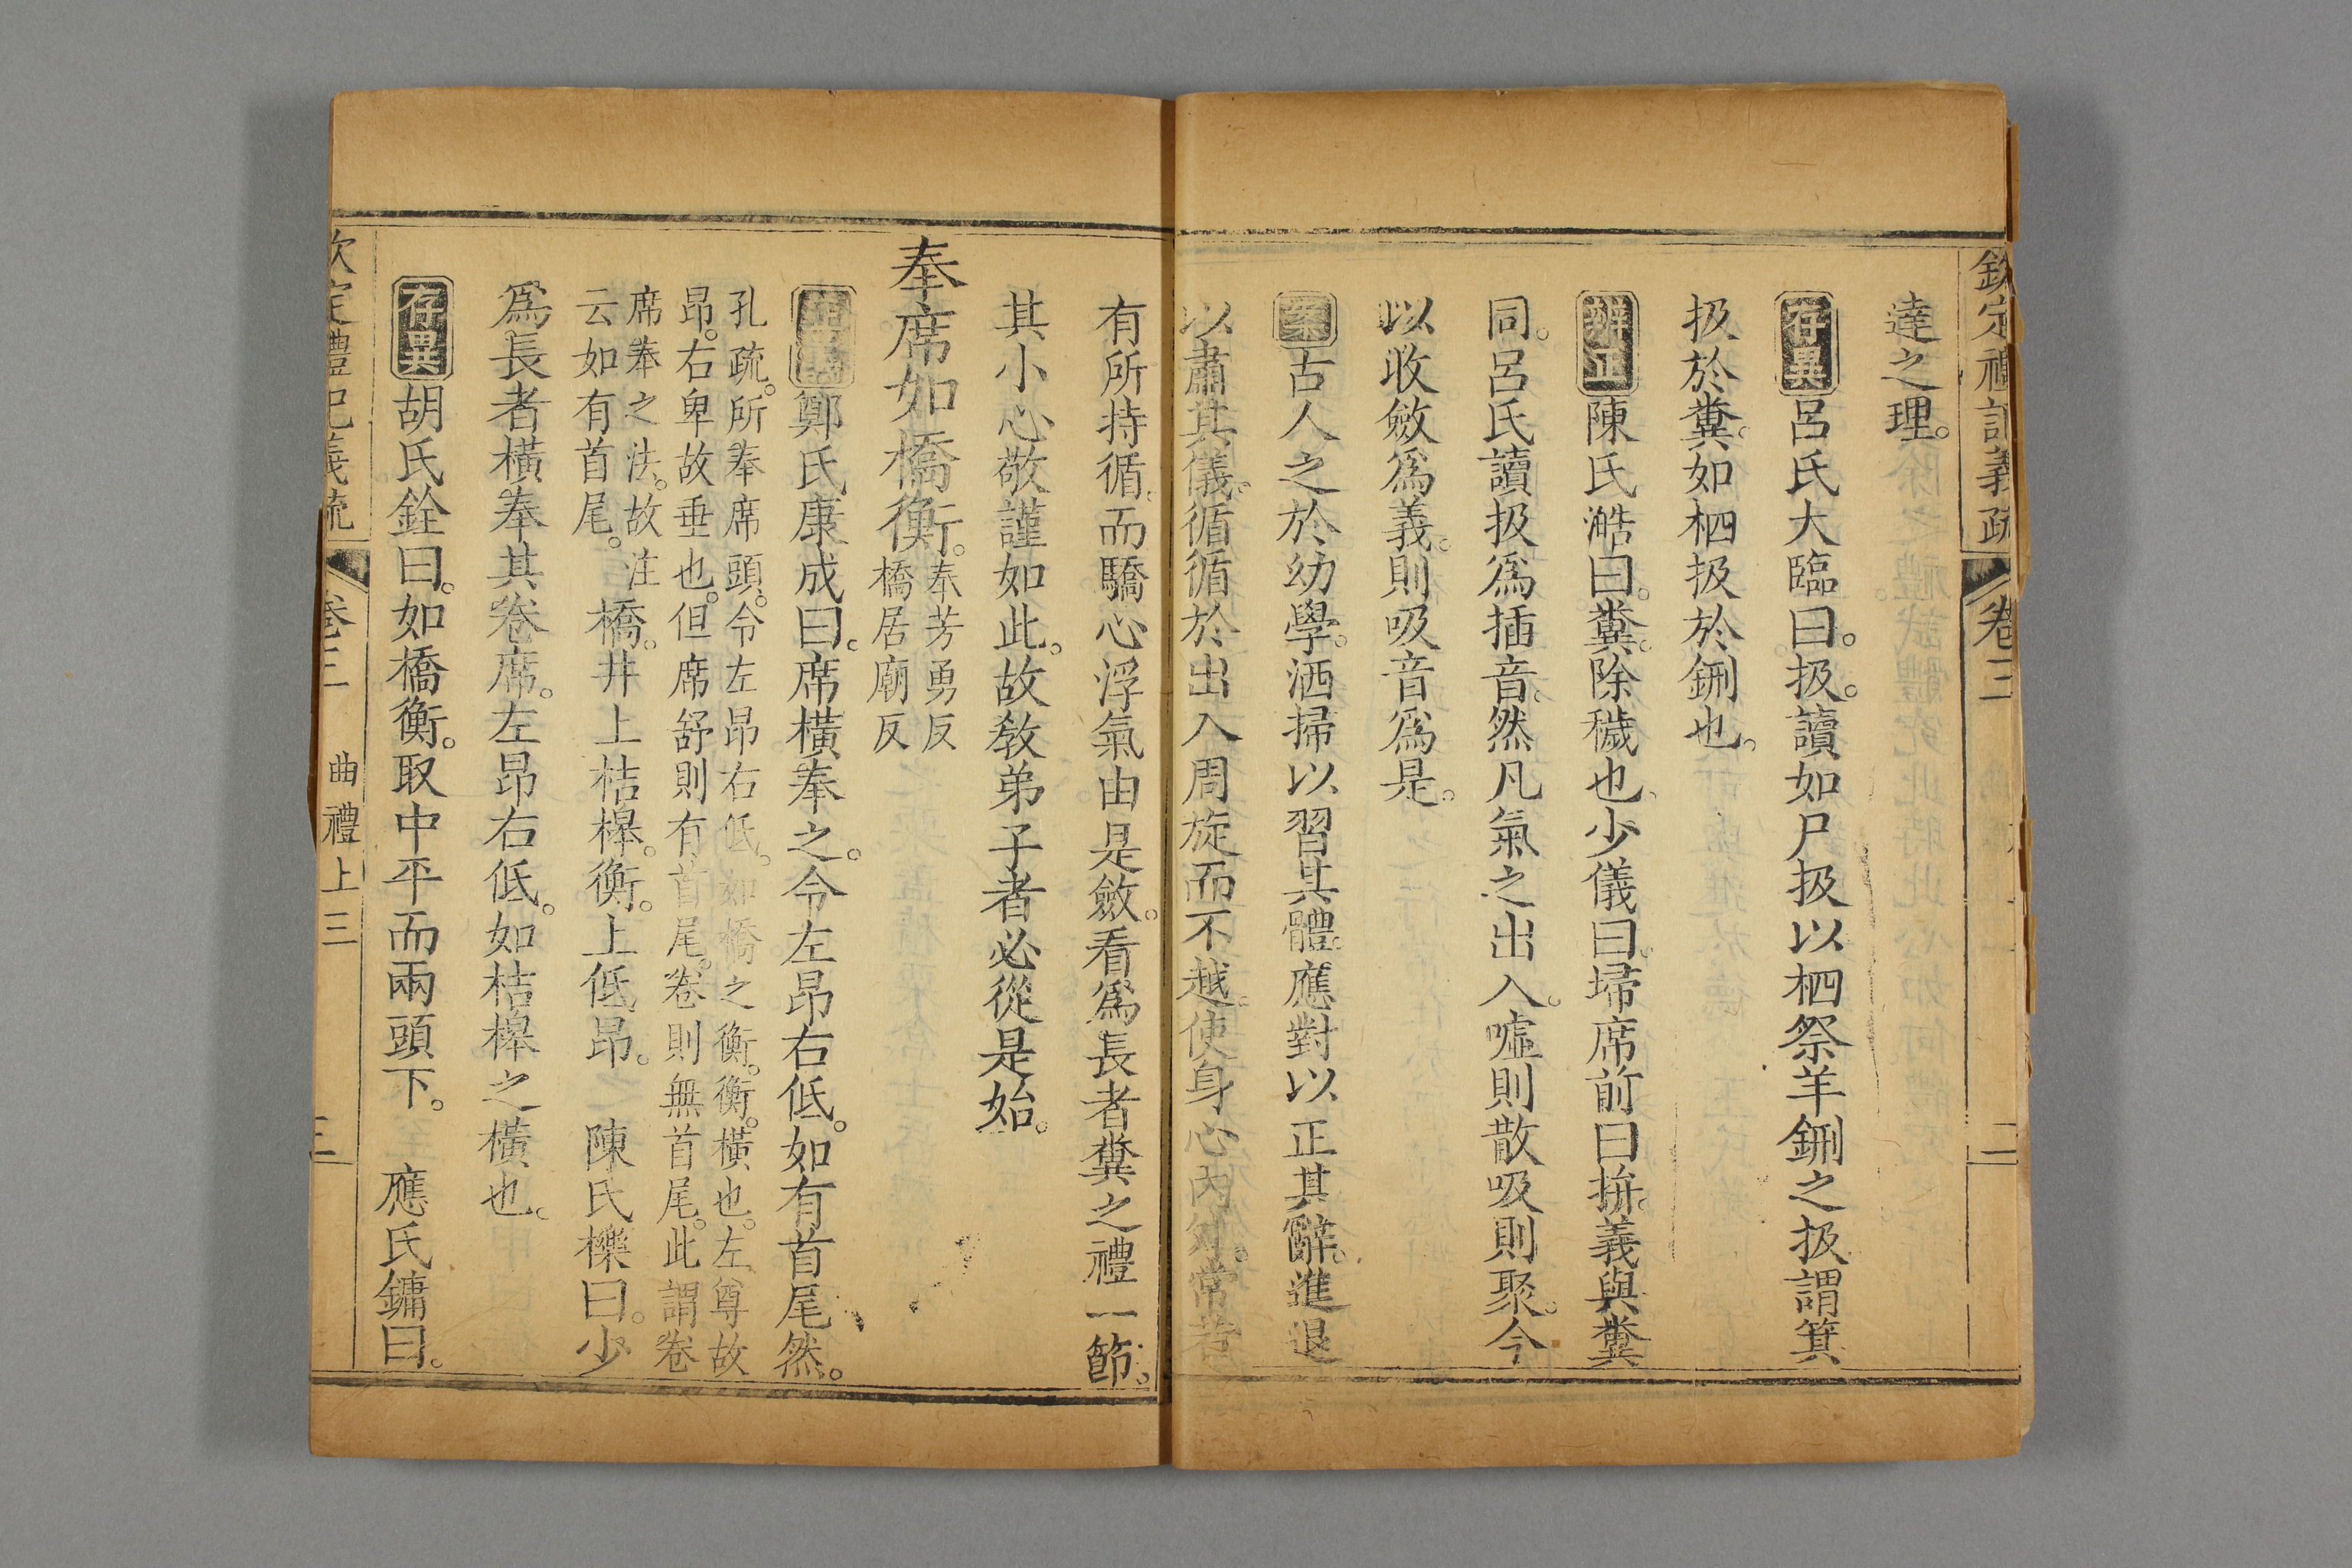 欽定禮記義疏 卷三 二
達之理。
存異呂氏大臨曰。扱。讀如尸扱以柶祭羊鉶之扱謂箕
扱於糞。如柶扱於鉶也。
辨正陳氏澔曰。糞。除穢也。少儀曰。埽席前曰拚。義與糞
同。呂氏讀扱爲插音。然凡氣之出入。噓則散吸則聚。今
以收斂爲義。則吸音爲是。
案古人之於幼學。洒掃以習其體。應對以正其辭。進退
以肅其儀。循循於出入周旋而不越。使身心內外。常若
有所持循。而驕心浮氣由是斂。看爲長者糞之禮一節。
其小心敬謹如此。故敎弟子者必從是始。
奉席如橋衡。奉芳勇反
橋居廟反
鄭氏康成曰。席橫奉之。令左昂右低。如有首尾然。
孔疏。所奉席頭。令左昂右低。如橋之衡。衡。橫也。左尊故
昂。右卑故垂也。但席舒則有首尾。卷則無首尾。此謂卷
席奉之法。故注
云如有首尾。
橋。井上桔槔。衡。上低昂。 陳氏櫟曰。少
爲長者橫奉其卷席。左昂右低。如桔槔之橫也。
存異胡氏銓曰。如橋衡。取中平而兩頭下。 應氏鏞曰。
欽定禮記義疏 卷三 曲禮上三 三